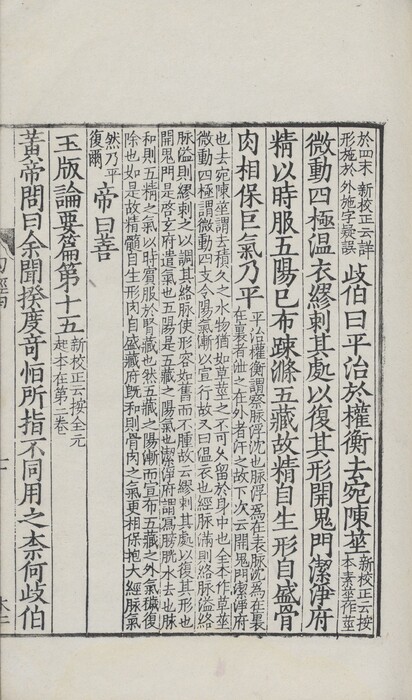 於四末　新校正云詳
形施於外施字疑誤
歧伯曰平治於權衡去宛陳莝
新校正云按
本素莝作莖
微動四極温衣繆刺其處以復其形開鬼門潔淨府
精以時服五陽已布疎滌五藏故精自生形自盛骨
肉相保巨氣乃平
平治權衡謂察脉浮沈也脉浮爲在表脉沈爲在裏
在裏者泄之在外者汗之故下次云開鬼門潔淨府
也去宛陳莝謂去積久之水物猶如草莝之不可久留於身中也全本作草莝
微動四極謂微動四支令陽氣漸以宣行故又曰温衣也經脉滿則絡脉溢絡
脉溢則繆刺之以調其絡脉使形容如舊而不腫故云繆刺其處以復其形也
開鬼門是啓玄府遣氣也五陽是五藏之陽氣也潔淨府謂寫膀胱水去也脉
和則五精之氣以時賓服於腎藏也然五藏之陽漸而宣布五藏之外氣穢復
除也如是故精髓自生形肉自盛藏府旣和則骨肉之氣更相保抱大經脉氣
然乃平
復爾
帝曰善
玉版論要篇第十五
新校正云按全元
起本在第二卷
黃帝問曰余聞揆度奇恒所指不同用之柰何歧伯